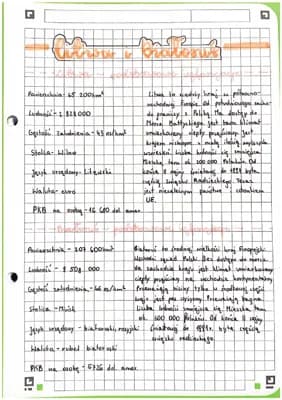 Litwa i Białoruś
Litwa - podstawowe informacje
Powierzchnia - 65 200km²
Ludność - 2 828 000
Gęstość zaludnienia - 43 os/km²
Stolica - Wilno
Język urzędowy - Litewski
Waluta - euro
PKB na osobę - 16 680 dol. amer.
Litwa to średni kraj w północno-
wschodniej Europie. Od południowego zachodu
graniczy z Polską. Ma dostęp do
Morza Bałtyckiego. Jest tawna klimat
umiarkowany ciepły przejściowy. Jest
krajem nizinnym z małą ilością
wzniesień. Liczba ludności się zmniejsza.
Mieszka tam ok. 200 000 Polaków. Od
końca II wojny światowej do 1991 była
częścią Związku Radzieckiego. Teraz
jest niezależnym państwem i członkiem
UE.
Białoruś - podstawowe informacje
Powierzchnia - 207 600km²
Ludność - 9 508 000
Gęstość zaludnienia - 46 os/km²
Stolica - Mińsk
Język urzędowy - białoruski, rosyjski
Waluta - rubel białoruski
PKB na osobę - 5726 dol. amer.
Białoruś to średniej wielkości kraj Europejski.
Wschodni sąsiad Polski. Bez dostępu do morza.
Na zachodzie kraju jest klimat umiarkowany
ciepły przejściowy, na wschodzie kontynentalny.
Przeważają niziny tylko w środkowej części
kraju jest pas wyżynny. Przeważają
Liczba ludności zmniejsza się. Mieszka tam
ok. 300 000 Polaków. Od końca II wojny
światowej do 1991r. była częścią
związku radzieckiego.